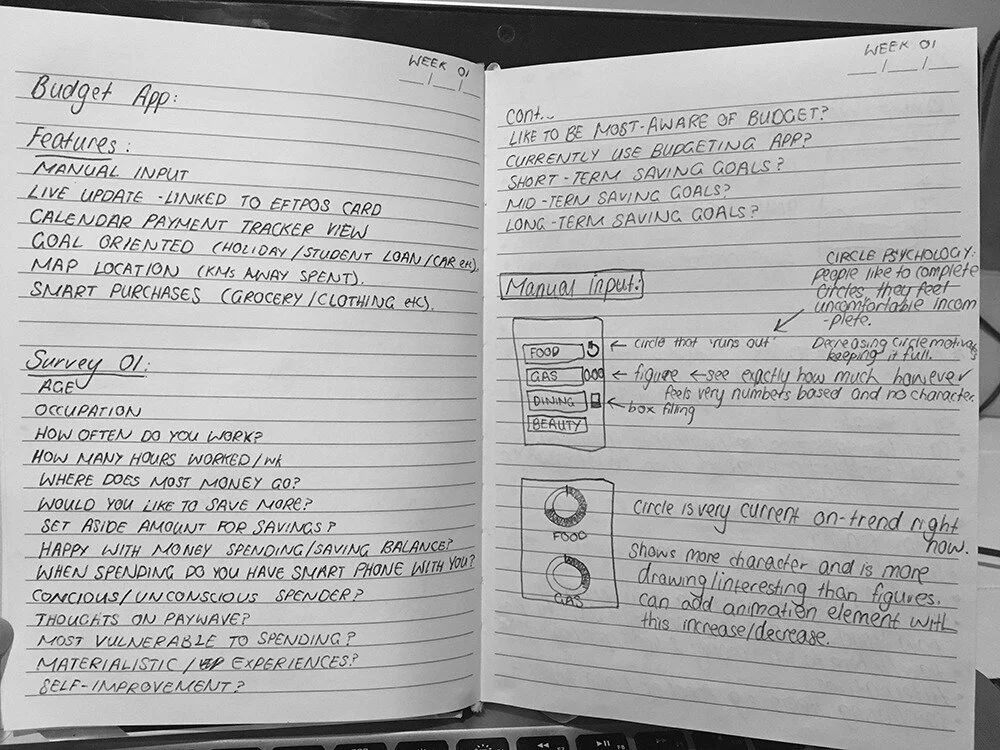 WEEK 01
__/__/__
Budget App:
Features:
MANUAL INPUT
LIVE UPDATE - LINKED TO EFTPOS CARD
CALENDAR PAYMENT TRACKER VIEW
GOAL ORIENTED (HOLIDAY/STUDENT LOAN/CAR etc).
MAP LOCATION (KMs AWAY SPENT).
SMART PURCHASES (GROCERY/CLOTHING etc).
Survey 01:
AGE
OCCUPATION
HOW OFTEN DO YOU WORK?
HOW MANY HOURS WORKED/wk
WHERE DOES MOST MONEY GO?
WOULD YOU LIKE TO SAVE MORE?
SET ASIDE AMOUNT FOR SAVINGS?
HAPPY WITH MONEY SPENDING/SAVING BALANCE?
WHEN SPENDING DO YOU HAVE SMART PHONE WITH YOU?
CONCIOUS/UNCONSCIOUS SPENDER?
THOUGHTS ON PAYWAVE?
MOST VULNERABLE TO SPENDING?
MATERIALISTIC / EXPERIENCES?
SELF-IMPROVEMENT?
WEEK 01
__/__/__
cont...
LIKE TO BE MOST-AWARE OF BUDGET?
CURRENTLY USE BUDGETING APP?
SHORT-TERM SAVING GOALS?
MID-TERM SAVING GOALS?
LONG-TERM SAVING GOALS?
CIRCLE PSYCHOLOGY:
people like to complete
circles, they feel
uncomfortable incom
-plete.
Decreasing circle motivates
keeping it full.
Manual input:
FOOD ← circle that 'runs out'
GAS 0.00 ← figure ← see exactly how much however
feels very numbers based and no character.
DINING ← box filling
BEAUTY
FOOD
GAS
Circle is very current on-trend right
now.
Shows more character and is more
drawing/interesting than figures.
can add animation element with
this increase/decrease.